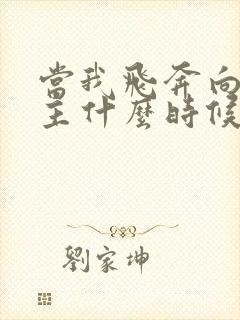 當我飛奔向
主什麼時候
劉家坤